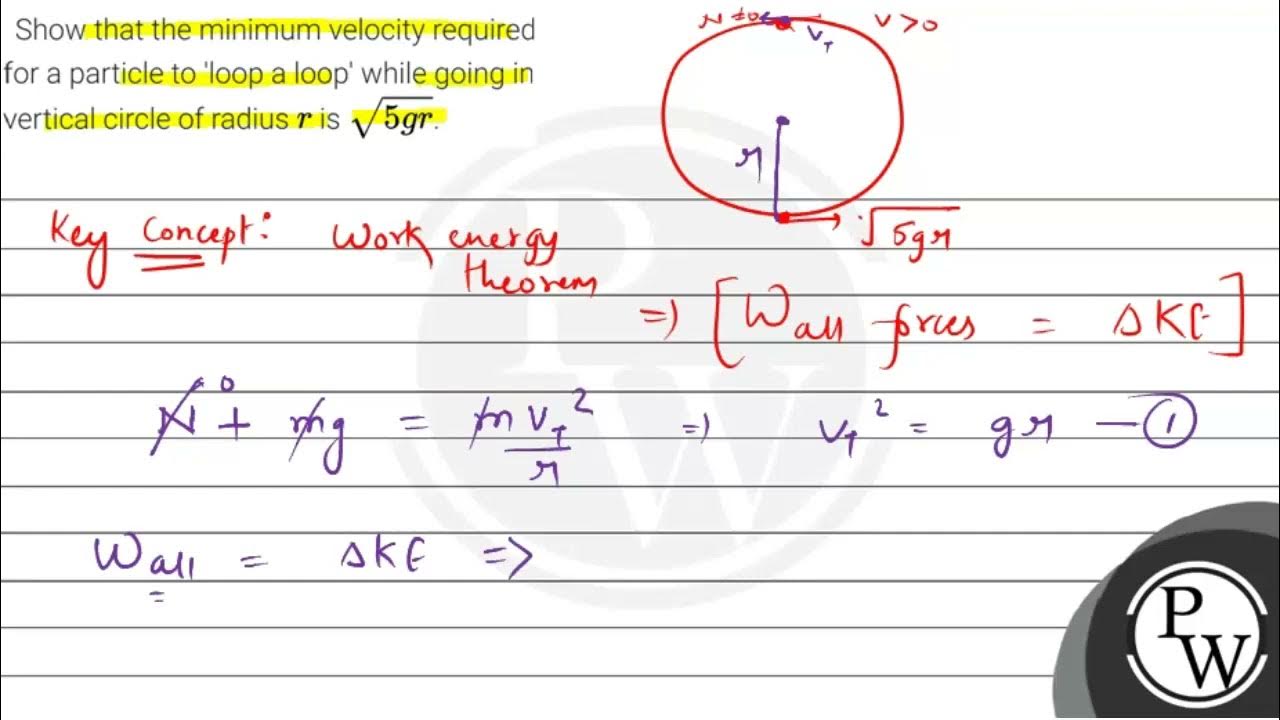 Show that the minimum velocity required
for a particle to 'loop a loop' while going in
vertical circle of radius r is √5gr.
N≠0 v>0
v_T
r
√5gr
Key Concept: Work energy
theorem
=> [W_all forces = ΔKE]
N⁰ + mg = mv_T²/r => v_T² = gr — ①
W_all = ΔKE =>
P
W
P
W